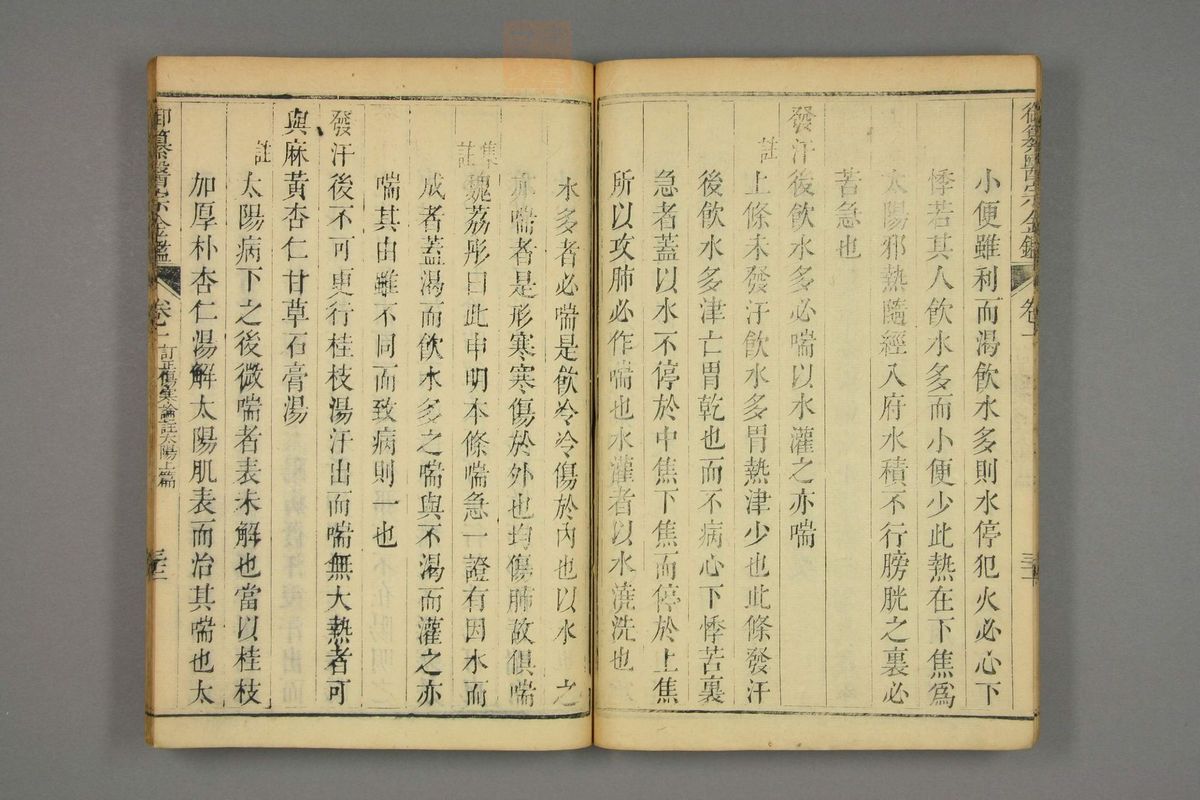 小便雖利而渴飲水多則水停犯火必心下
悸若其人飲水多而小便少此熱在下焦爲
太陽邪熱隨經入府水積不行膀胱之裏必
苦急也
發汗後飲水多必喘以水灌之亦喘
註
上條未發汗飲水多胃熱津少也此條發汗
後飲水多津亡胃乾也而不病心下悸苦裏
急者蓋以水不停於中焦下焦而停於上焦
所以攻肺必作喘也水灌者以水澆洗也
水多者必喘是飲冷冷傷於內也以水之
亦喘者是形寒寒傷於外也均傷肺故俱喘
集註
魏荔彤曰此申明本條喘急一證有因水而
成者蓋渴而飲水多之喘與不渴而灌之亦
喘其由雖不同而致病則一也
發汗後不可更行桂枝湯汗出而喘無大熱者可
與麻黃杏仁甘草石膏湯
註
太陽病下之後微喘者表未解也當以桂枝
加厚朴杏仁湯解太陽肌表而治其喘也太
御纂醫宗金鑑
卷一
訂正傷寒論註太陽上篇